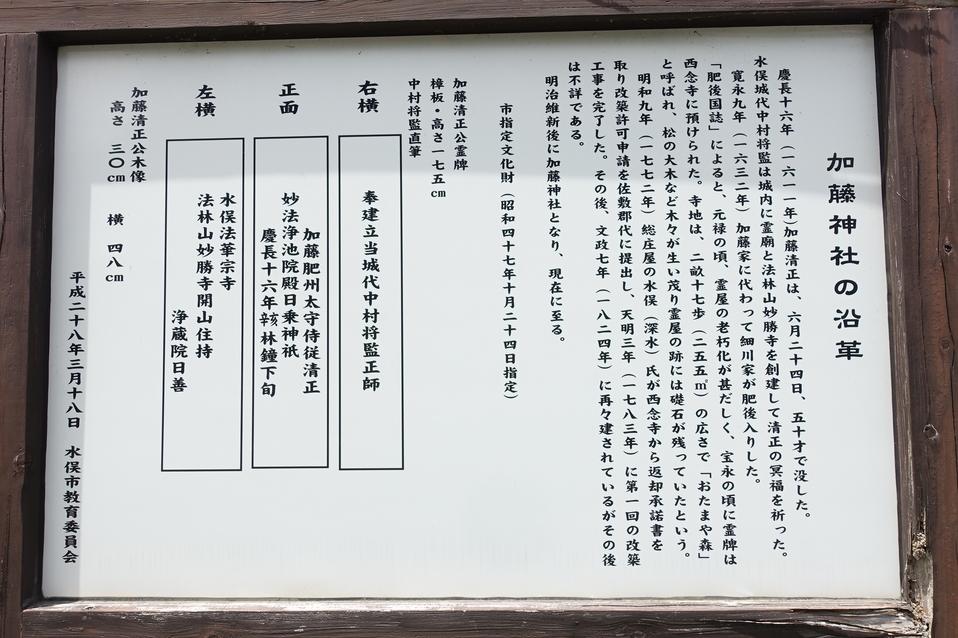 加藤神社の沿革
慶長十六年（一六一一年）加藤清正は、六月二十四日、五十才で没した。
水俣城代中村将監は城内に霊廟と法林山妙勝寺を創建して清正の冥福を祈った。
寛永九年（一六三二年）加藤家に代わって細川家が肥後入りした。
「肥後国誌」によると、元禄の頃、霊屋の老朽化が甚だしく、宝永の頃に霊牌は
西念寺に預けられた。寺地は、二畝十七歩（二五五㎡）の広さで「おたまや森」
と呼ばれ、松の大木など木々が生い茂り霊屋の跡には礎石が残っていたという。
明和九年（一七七二年）総庄屋の水俣（深水）氏が西念寺から返却承諾書を
取り改築許可申請を佐敷郡代に提出し、天明三年（一七八三年）に第一回の改築
工事を完了した。その後、文政七年（一八二四年）に再々建されているがその後
は不詳である。
明治維新後に加藤神社となり、現在に至る。
市指定文化財（昭和四十七年十月二十四日指定）
加藤清正公霊牌
樟板・高さ一七五cm
中村将監直筆
右横
奉建立当城代中村将監正師
正面
加藤肥州太守侍従清正
妙法浄池院殿日乗神祇
慶長十六年辛亥林鐘下旬
左横
水俣法華宗寺
法林山妙勝寺開山住持
浄蔵院日善
加藤清正公木像
高さ　三〇cm　横　四八cm
平成二十八年三月十八日　水俣市教育委員会